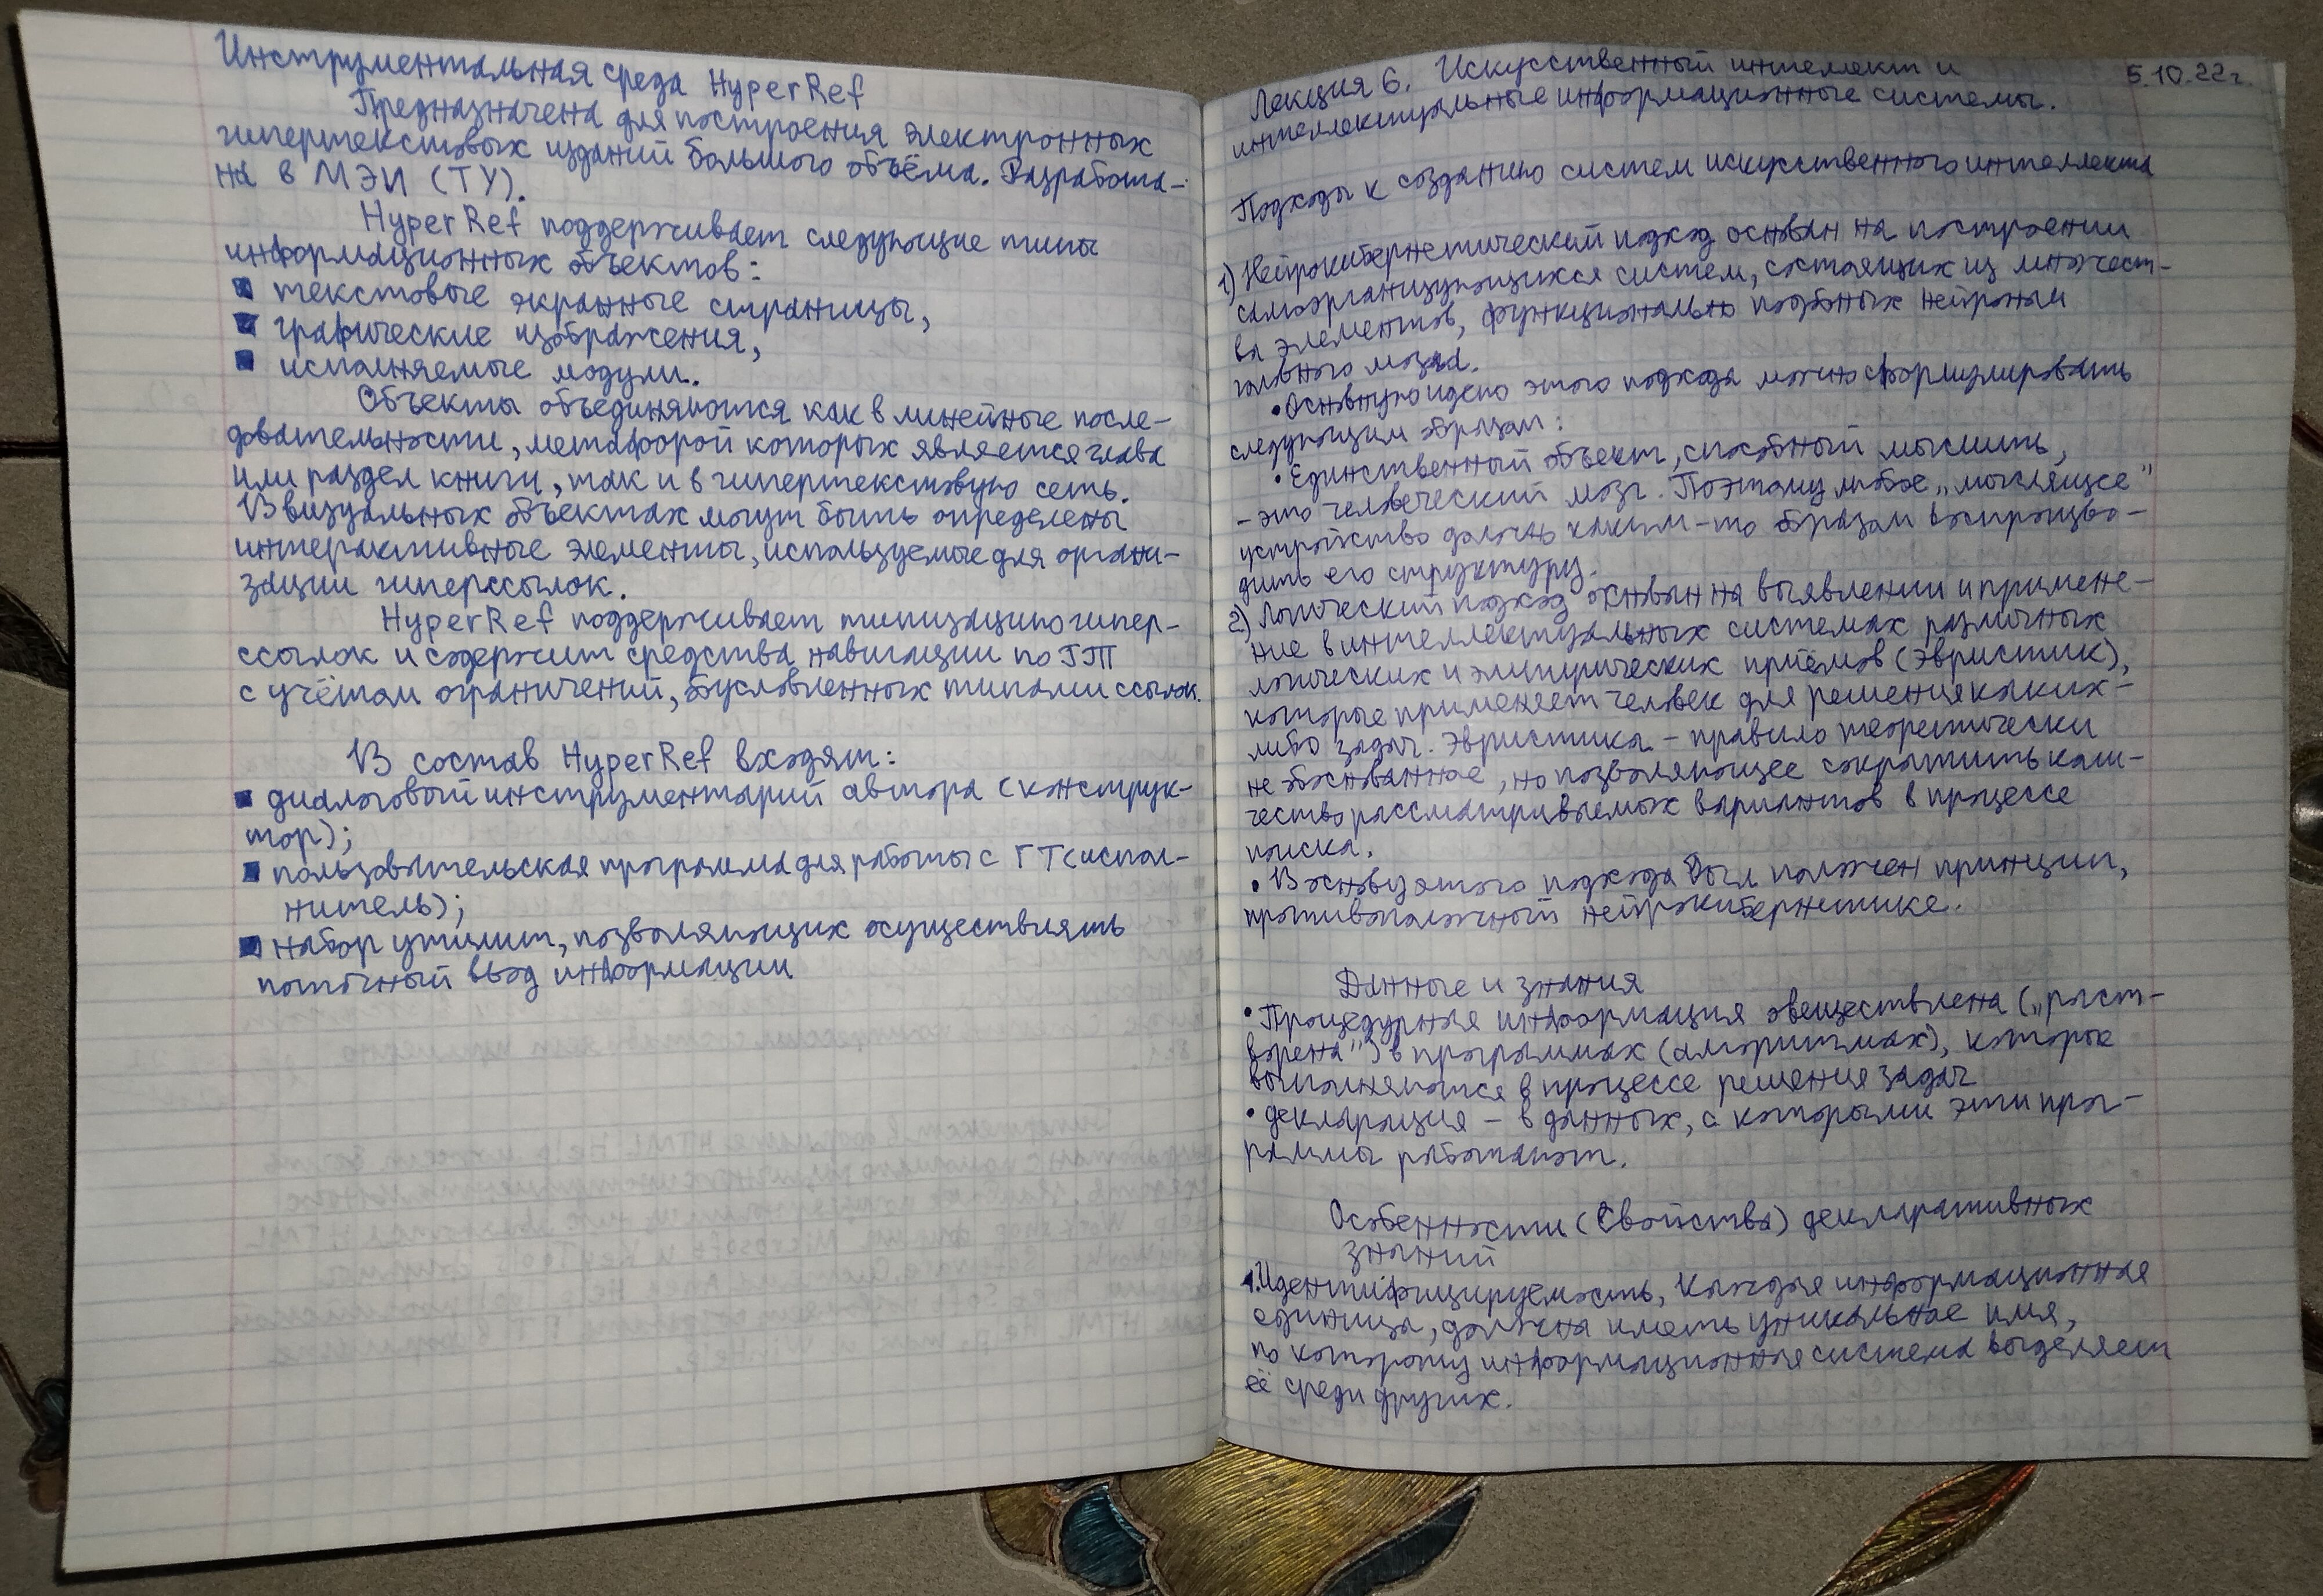 Инструментальная среда HyperRef
Предназначена для построения электронных
гипертекстовых изданий большого объёма. Разработа-
на в МЭИ (ТУ).
HyperRef поддерживает следующие типы
информационных объектов:
▪ текстовые экранные страницы,
▪ графические изображения,
▪ исполняемые модули.
Объекты объединяются как в линейные после-
довательности, метафорой которых является глава
или раздел книги, так и в гипертекстовую сеть.
В визуальных объектах могут быть определены
интерактивные элементы, используемые для органи-
зации гиперссылок.
HyperRef поддерживает типизацию гипер-
ссылок и содержит средства навигации по ГТ
с учётом ограничений, обусловленных типами ссылок.
В состав HyperRef входят:
▪ диалоговый инструментарий автора (конструк-
тор);
▪ пользовательская программа для работы с ГТ (испол-
нитель);
▪ набор утилит, позволяющих осуществлять
поточный ввод информации
5.10.22г.
Лекция 6. Искусственный интеллект и
интеллектуальные информационные системы.
Подходы к созданию систем искусственного интеллекта
1) Нейрокибернетический подход основан на построении
самоорганизующихся систем, состоящих из множест-
ва элементов, функционально подобных нейронам
головного мозга.
• Основную идею этого подхода можно сформулировать
следующим образом:
• Единственный объект, способный мыслить,
- это человеческий мозг. Поэтому любое „мыслящее"
устройство должно каким-то образом воспроизво-
дить его структуру.
2) Логический подход основан на выявлении и примене-
ние в интеллектуальных системах различных
логических и эмпирических приёмов (эвристик),
которые применяет человек для решения каких-
либо задач. Эвристика - правило теоретически
не обоснованное, но позволяющее сократить коли-
чество рассматриваемых вариантов в процессе
поиска.
• В основу этого подхода был положен принцип,
противоположный нейрокибернетике.
Данные и знания
• Процедурная информация овеществлена („раст-
ворена") в программах (алгоритмах), которые
выполняются в процессе решения задач
• декларация - в данных, с которыми эти прог-
раммы работают.
Особенности (Свойства) декларативных
знаний
1. Идентифицируемость, Каждая информационная
единица, должна иметь уникальное имя,
по которому информационная система выделяет
её среди других.